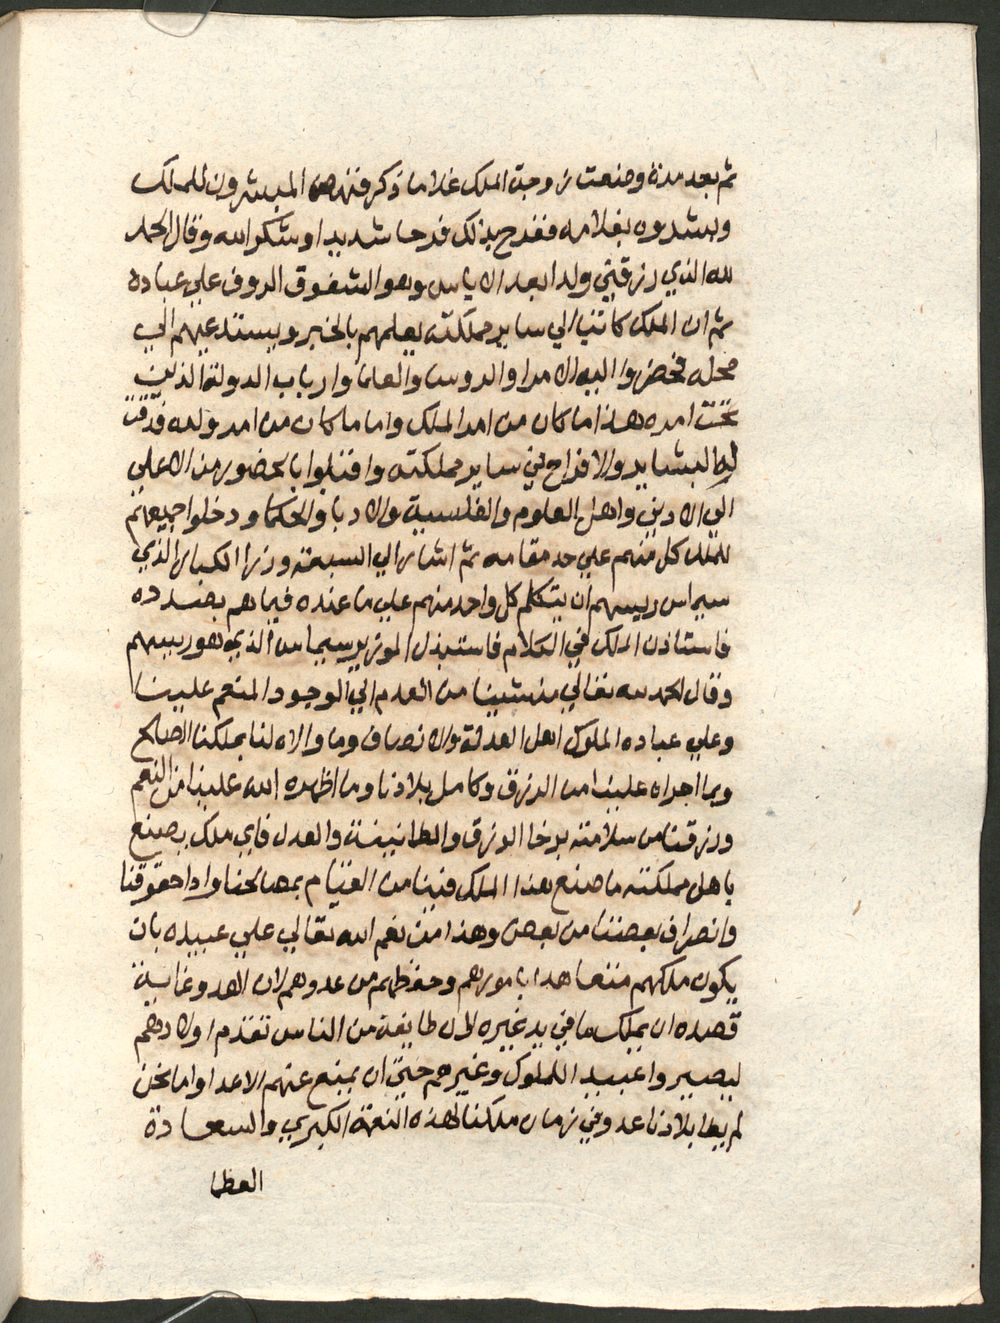 ثم بعد مدة وضعت زوجة الملك غلاما ذكر فنهض المبشرون للملك
وبشروه بغلامه ففرح بذلك فرحا شديدا وشكر الله وقال الحمد
لله الذي رزقني ولدا بعد الاياس وهو الشفوق الروف علي عباده
ثم ان الملك كاتب الي ساير مملكته يعلمهم بالخبر ويستدعيهم الي
محله فحضروا اليه الامرا والروسا والعلما وارباب الدولة الذين
تحت امره هذا ما كان من امر الملك واما ما كان من امر ولده فدقت
له البشاير والافراح في ساير مملكته واقبلوا بالحضور من الاعلي
الي الادني واهل العلوم والفلسية والادبا والحكما ودخلوا جميعهم
للملك كل منهم علي حد مقامه ثم اشار الي السبعة وزرا الكبار الذي
سيماس ريسهم ان يتكلم كل واحد منهم علي ما عنده فيما هم بصدده
فاستاذن الملك في الكلام فاستبذل الوزير سيماس الذي هو رييسهم
وقال الحمد لله تعالي منشينا من العدم الي الوجود المنعم علينا
وعلي عباده الملوك اهل العدلة والانصاف وما والاه لنا بملكنا الصالح
وبما اجراه علينا من الرزق وكامل بلادنا وما اظهره الله علينا من النعم
ورزقنا من سلامته برخا الرزق والطانينة والعدل فاي ملك يصنع
باهل مملكته ما صنع هذا الملك فينا من القيام بمصالحنا وادا حقوقنا
وانصاف بعضنا من بعض وهذا من نعم الله تعالي علي عبيده بان
يكون ملكهم متعاهدا بامورهم وحفظهم من عدوهم لان العدو غاية
قصده ان يملك ما في يد غيره لان طايفة من الناس تقدم اولادهم
ليصيروا عبيد اللملوك وغيرهم حتي ان يمنع عنهم الاعدا واما نحن
لم يطا بلادنا عدو في زمان ملكنا لهذه النعمة الكبري والسعادة
العظما